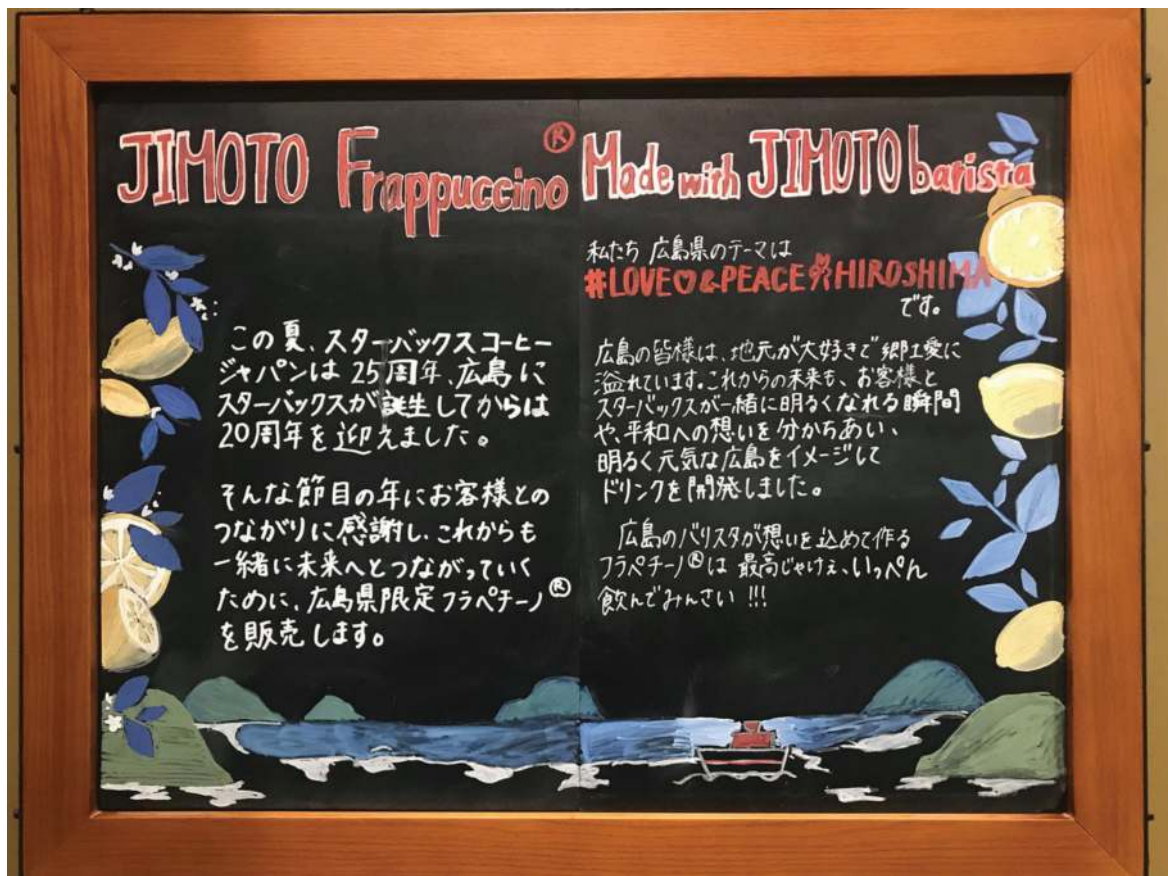 JIMOTO Frappuccino® Made with JIMOTO barista
この夏、スターバックスコーヒー
ジャパンは25周年、広島に
スターバックスが誕生してからは
20周年を迎えました。
そんな節目の年にお客様との
つながりに感謝し、これからも
一緒に未来へとつながっていく
ために、広島県限定フラペチーノ®
を販売します。
私たち 広島県のテーマは
#LOVE♡&PEACE✌HIROSHIMA
です。
広島の皆様は、地元が大好きで郷土愛に
溢れています。これからの未来も、お客様と
スターバックスが一緒に明るくなれる瞬間
や、平和への想いを分かちあい、
明るく元気な広島をイメージして
ドリンクを開発しました。
広島のバリスタが想いを込めて作る
フラペチーノ®は 最高じゃけぇ、いっぺん
飲んでみんさい!!!